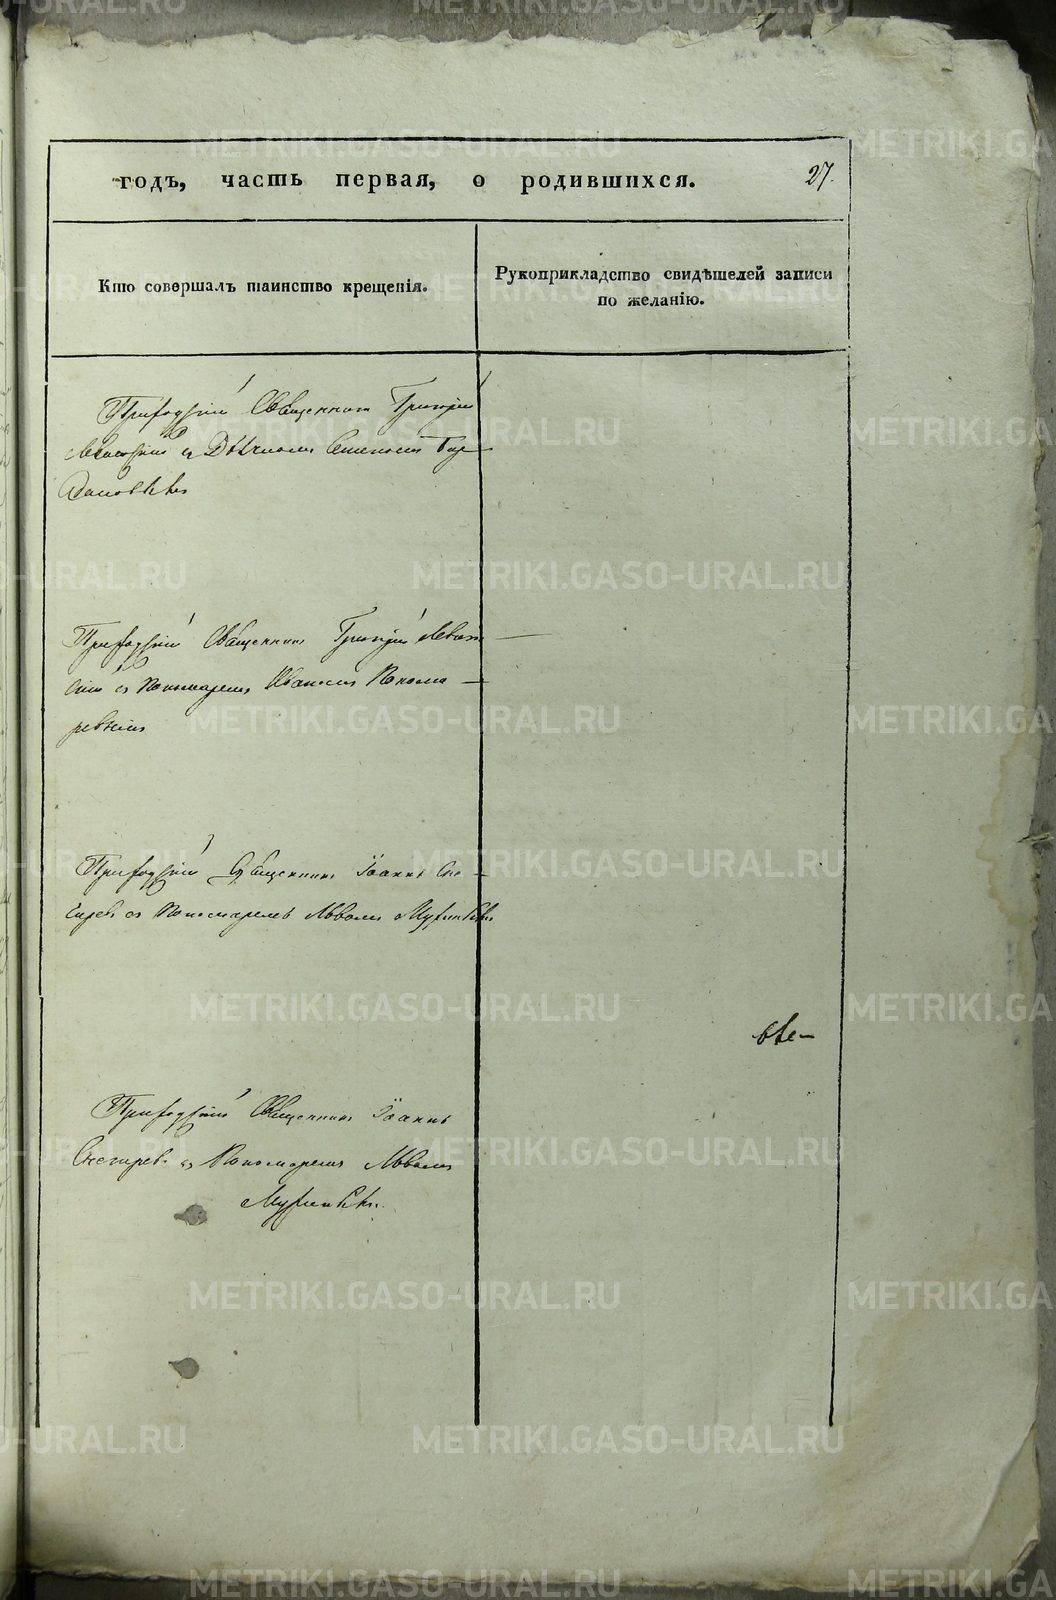 годъ, часть первая, о родившихся. 27.
Кто совершалъ таинство крещенія.
Рукоприкладство свидѣтелей записи
по желанію.
Приходскій Священникъ Григорій
Левитскій съ Дьячкомъ Симеономъ
Приходскій Священникъ Григорій Левит
скій съ Пономаремъ Иваномъ Понома
ревымъ
Приходскій Священникъ Іоаннъ Сне
гиревъ съ Пономаремъ Львомъ
Приходскій Священникъ Іоаннъ
Снегиревъ съ Пономаремъ Львомъ
METRIKI.GASO-URAL.RU